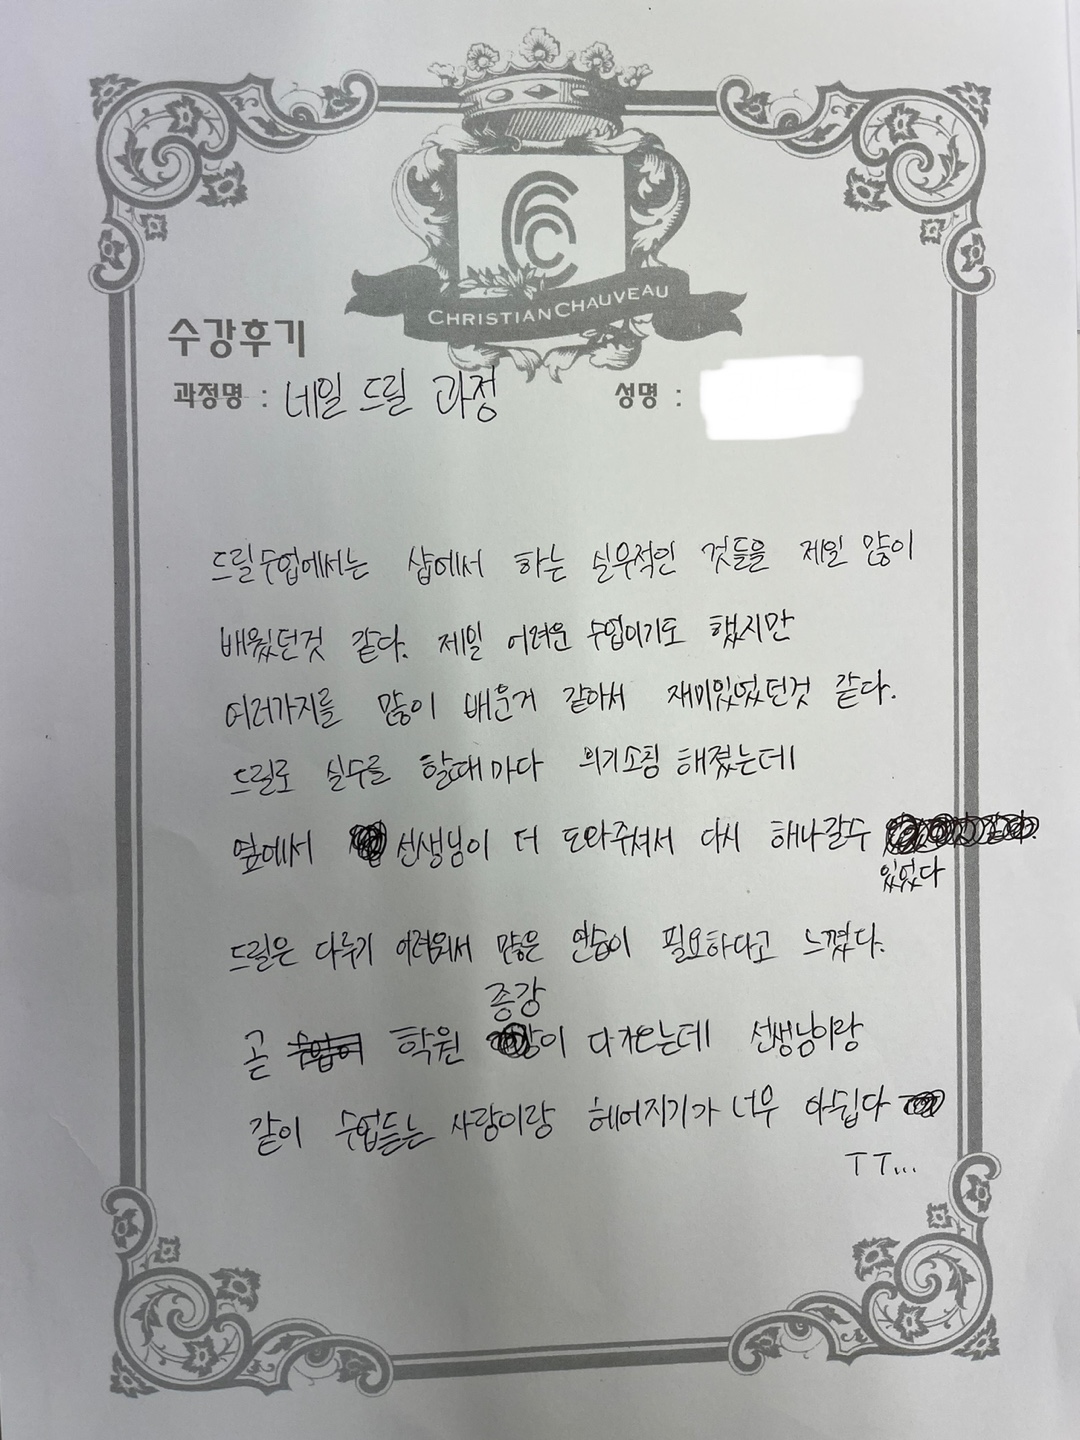 CHRISTIAN CHAUVEAU
수강후기
과정명 : 네일 드릴 과정 성명 :
드릴수업에서는 샵에서 하는 실무적인 것들을 제일 많이
배웠던것 같다. 제일 어려운 수업이기도 했지만
여러가지를 많이 배운거 같아서 재미있었던것 같다.
드릴로 실수를 할때마다 의기소침 해졌는데
옆에서 선생님이 더 도와주셔서 다시 해나갈수
있었다
드릴은 다루기 어려워서 많은 연습이 필요하다고 느꼈다.
종강
곧 학원 이 다가오는데 선생님이랑
같이 수업듣는 사람이랑 헤어지기가 너무 아쉽다
ㅜㅜ...